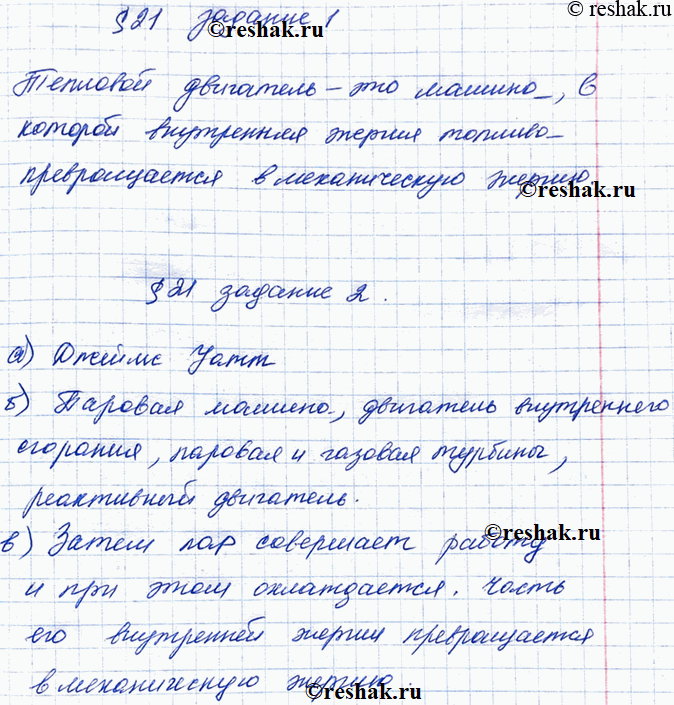 ©reshak.ru
§21 задание 1
©reshak.ru
Тепловой двигатель - это машина, в
которой внутренняя энергия топлива
превращается в механическую энергию
©reshak.ru
§21 задание 2.
а) Джеймс Уатт
б) Паровая машина, двигатель внутреннего
сгорания, паровая и газовая турбины,
реактивный двигатель.
©reshak.ru
в) Затем пар совершает работу
и при этом охлаждается. Часть
его внутренней энергии превращается
в механическую энергию.
©reshak.ru